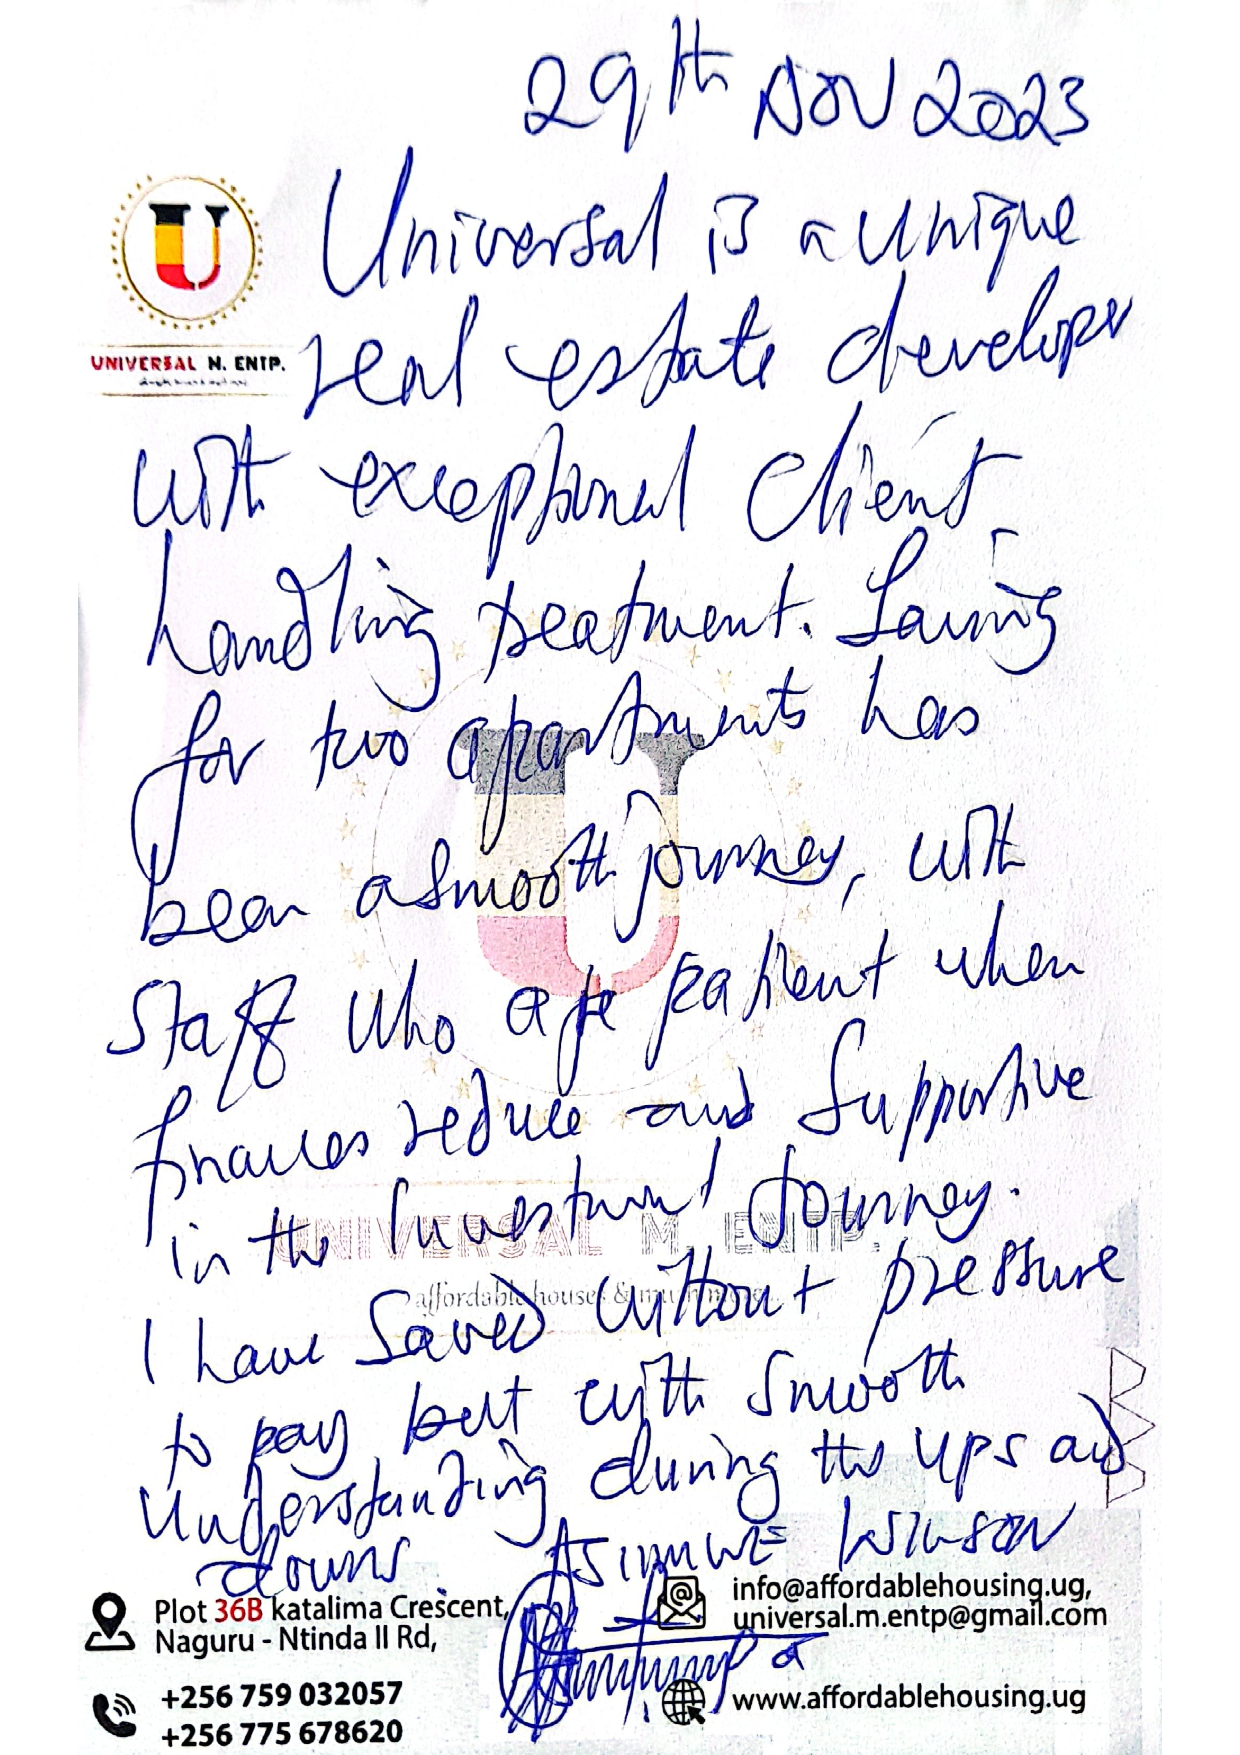 29th NOV 2023
Universal is a unique
UNIVERSAL M. ENTP.
real estate developer
with exceptional client
handling treatment. Saving
for two apartments has
been a smooth journey, with
staff who are patient when
finances reduce and supportive
in the investment journey.
UNIVERSAL M. ENTP.
affordable houses & much more
I have saved without pressure
to pay but with smooth
understanding during the ups and
downs.
ASIIMWE WILSON
Plot 36B katalima Crescent,
Naguru - Ntinda II Rd,
+256 759 032057
+256 775 678620
info@affordablehousing.ug,
universal.m.entp@gmail.com
www.affordablehousing.ug